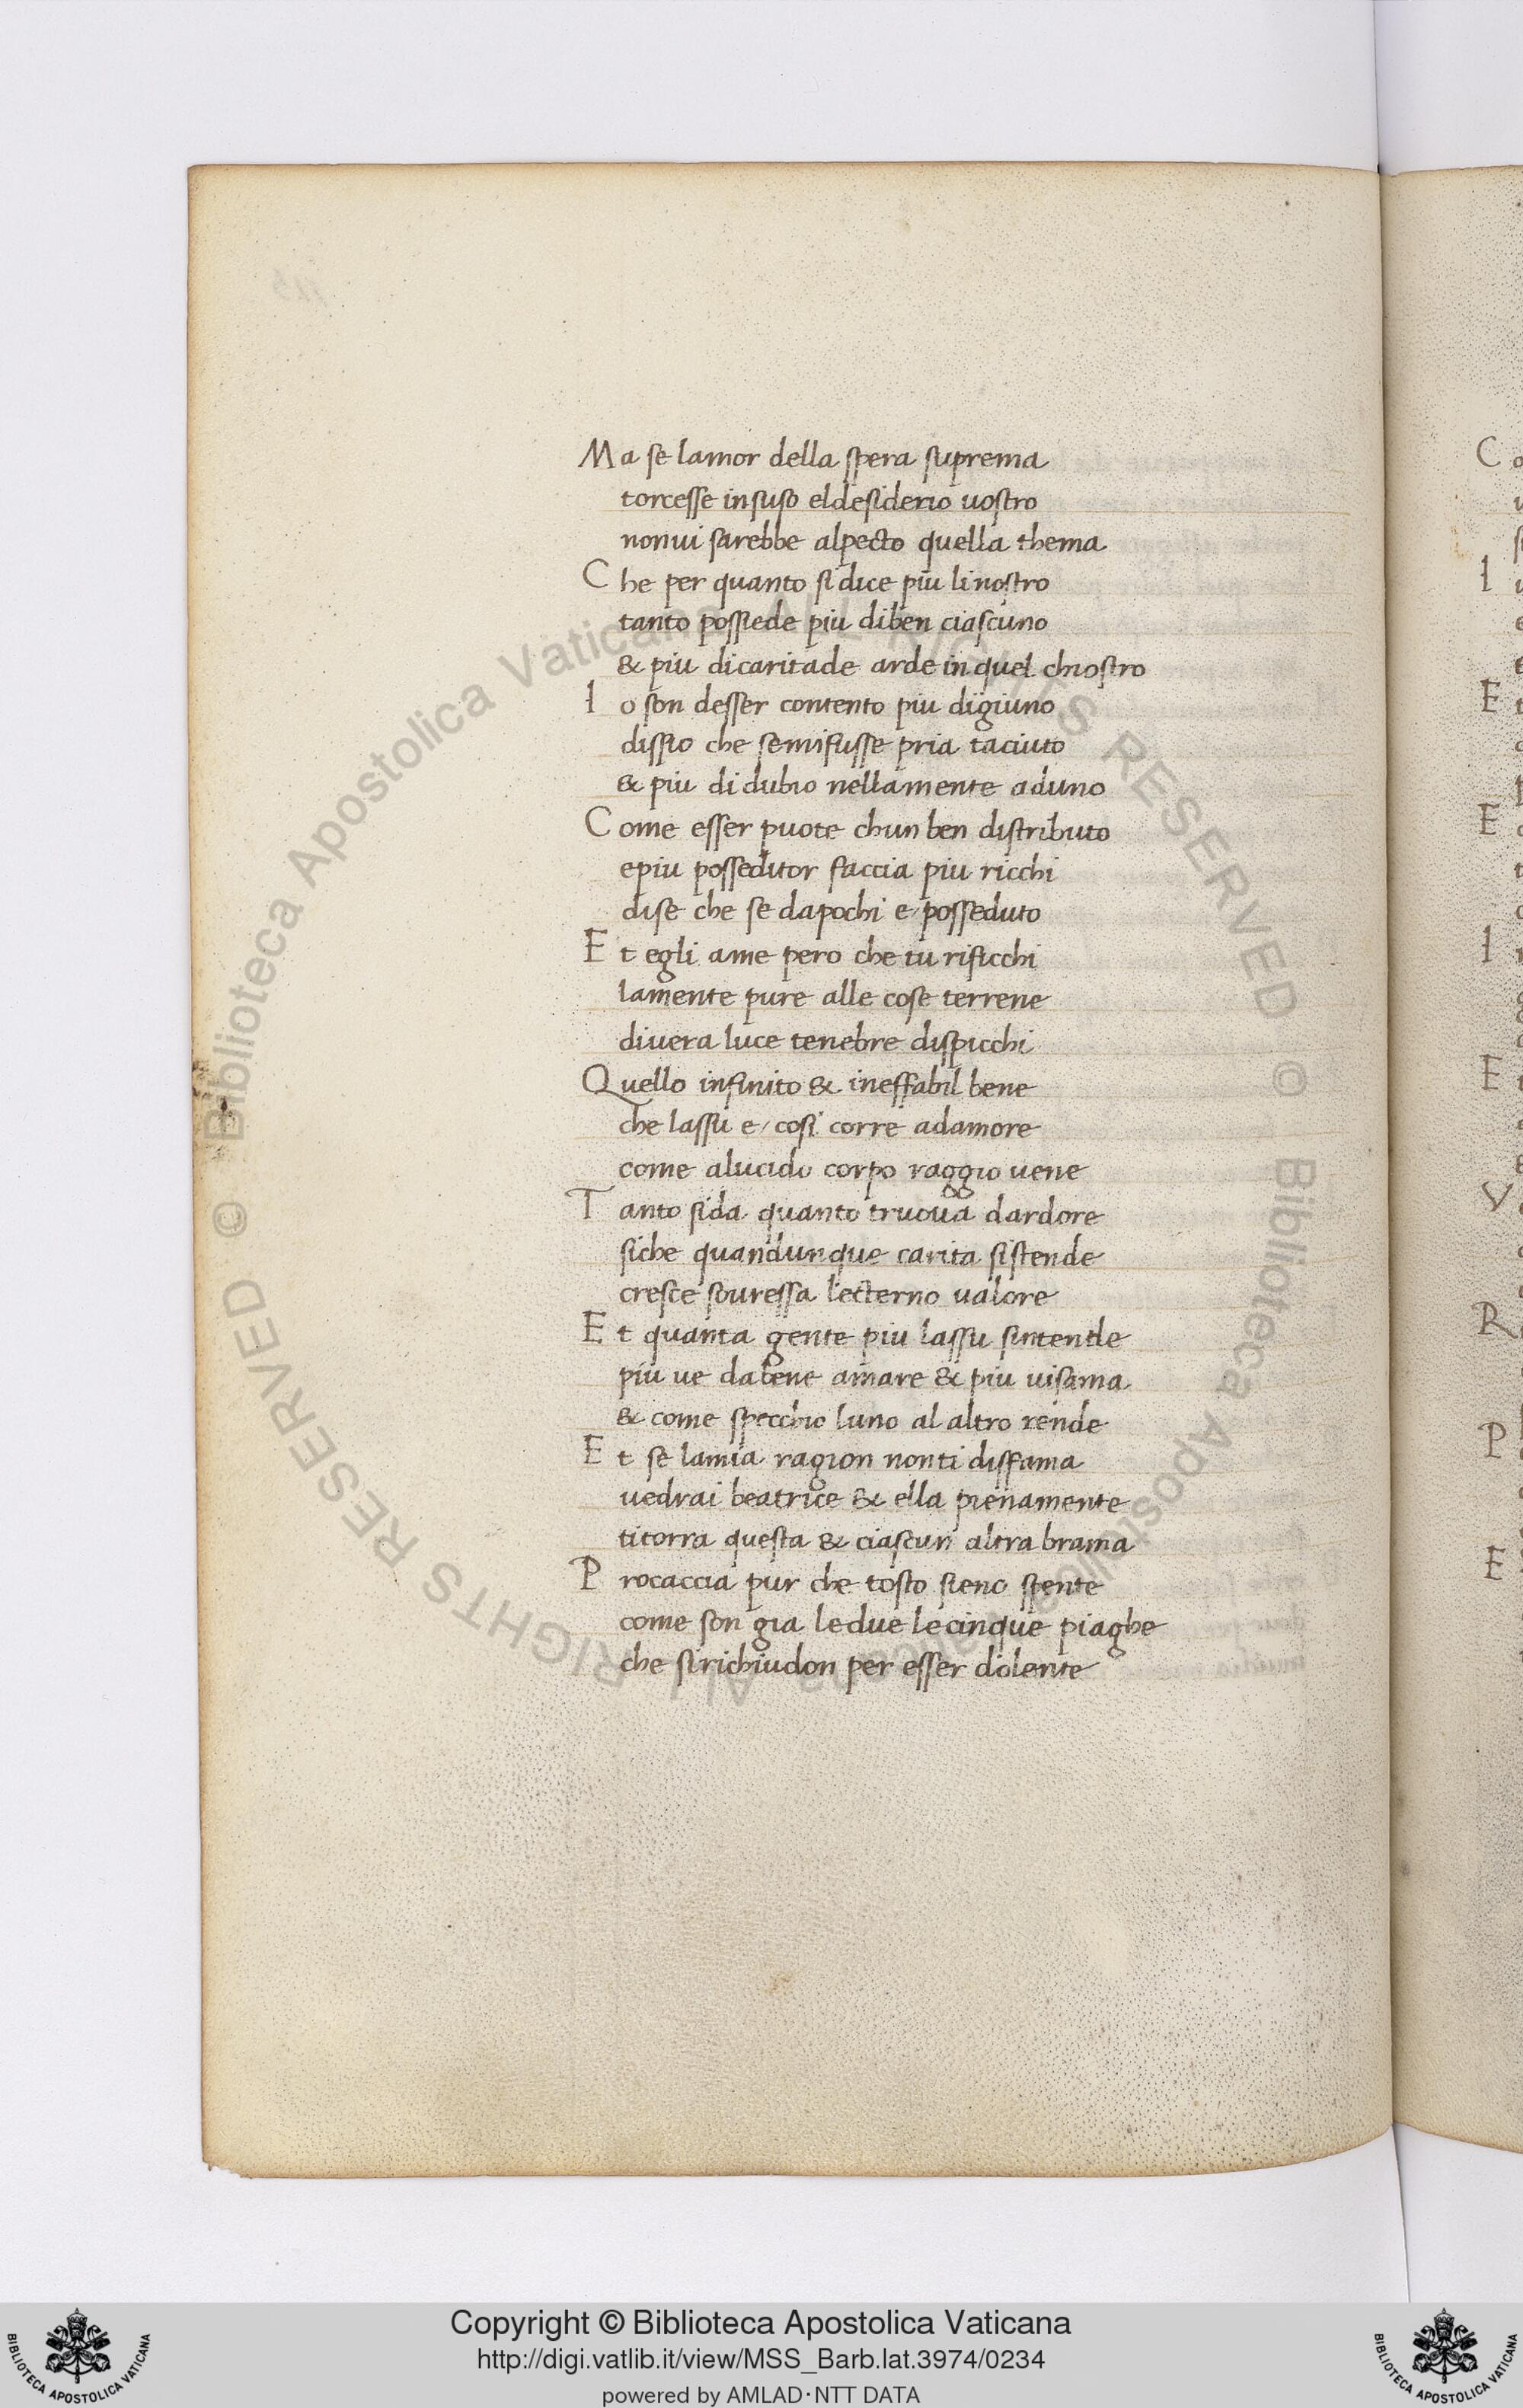 Ma se lamor della spera suprema
torcesse insuso eldesiderio uostro
nonui sarebbe alpecto quella thema
Che per quanto sidice piu linostro
tanto possiede piu diben ciascuno
& piu dicaritade arde in quel chiostro
Io son desser contento piu digiuno
dissio che semifusse pria taciuto
& piu di dubio nellamente aduno
Come esser puote chun ben distributo
epiu posseditor faccia piu ricchi
dise che se dapochi e posseduto
Et egli ame pero che tu rificchi
lamente pure alle cose terrene
diuera luce tenebre dispicchi
Quello infinito & ineffabil bene
che lassu e cosi corre adamore
come alucido corpo raggio uene
Tanto sida quanto truoua dardore
siche quandunque carita sistende
cresce souressa lecterno ualore
Et quanta gente piu lassu sintende
piu ue dabene amare & piu uisama
& come specchio luno al altro rende
Et se lamia ragion nonti disfama
uedrai beatrice & ella pienamente
titorra questa & ciascun altra brama
Procaccia pur che tosto sieno spente
come son gia ledue lecinque piaghe
che sirichiudon per esser dolente
Copyright © Biblioteca Apostolica Vaticana
http://digi.vatlib.it/view/MSS_Barb.lat.3974/0234
powered by AMLAD·NTT DATA